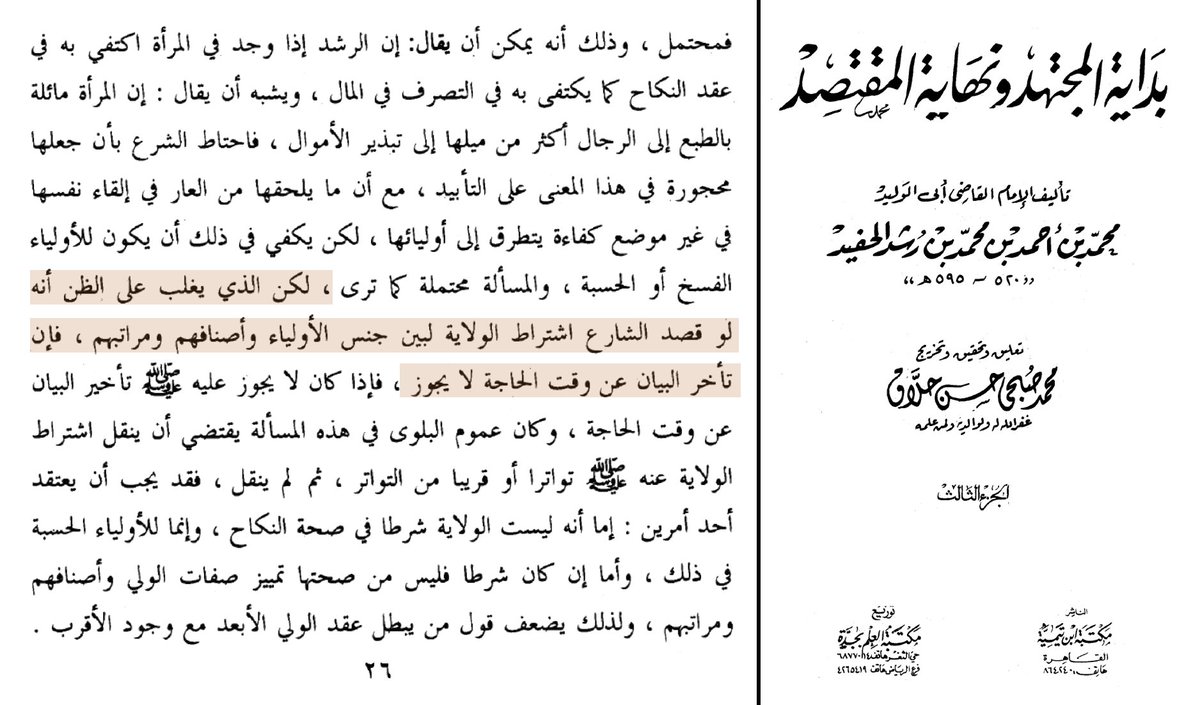 بداية المجتهد ونهاية المقتصد
تأليف الإمام القاضي أبي الوليد
محمد بن أحمد بن محمد بن رشد الحفيد
«٥٢٠ - ٥٩٥ هـ»
تعليق وتحقيق وتخريج
محمد صبحي حسن حلاق
غفر الله له ولوالديه ولمن علمه
الجزء الثالث
الناشر
مكتبة ابن تيمية
القاهرة
هاتف: ٨٦٤٢٤٠
توزيع
مكتبة العلم بجدة
حي الثغر هاتف ٦٨٧٧٠١٤
فرع الرياض هاتف ٤٢٦٥٤١٩
فمحتمل ، وذلك أنه يمكن أن يقال: إن الرشد إذا وجد في المرأة اكتفي به في
عقد النكاح كما يكتفى به في التصرف في المال ، ويشبه أن يقال : إن المرأة مائلة
بالطبع إلى الرجال أكثر من ميلها إلى تبذير الأموال ، فاحتاط الشرع بأن جعلها
محجورة في هذا المعنى على التأبيد ، مع أن ما يلحقها من العار في إلقاء نفسها
في غير موضع كفاءة يتطرق إلى أوليائها ، لكن يكفي في ذلك أن يكون للأولياء
الفسخ أو الحسبة ، والمسألة محتملة كما ترى ، لكن الذي يغلب على الظن أنه
لو قصد الشارع اشتراط الولاية لبين جنس الأولياء وأصنافهم ومراتبهم ، فإن
تأخر البيان عن وقت الحاجة لا يجوز ، فإذا كان لا يجوز عليه ﷺ تأخير البيان
عن وقت الحاجة ، وكان عموم البلوى في هذه المسألة يقتضي أن ينقل اشتراط
الولاية عنه ﷺ تواترا أو قريبا من التواتر ، ثم لم ينقل ، فقد يجب أن يعتقد
أحد أمرين : إما أنه ليست الولاية شرطا في صحة النكاح ، وإنما للأولياء الحسبة
في ذلك ، وأما إن كان شرطا فليس من صحتها تمييز صفات الولي وأصنافهم
ومراتبهم ، ولذلك يضعف قول من يبطل عقد الولي الأبعد مع وجود الأقرب .
٢٦